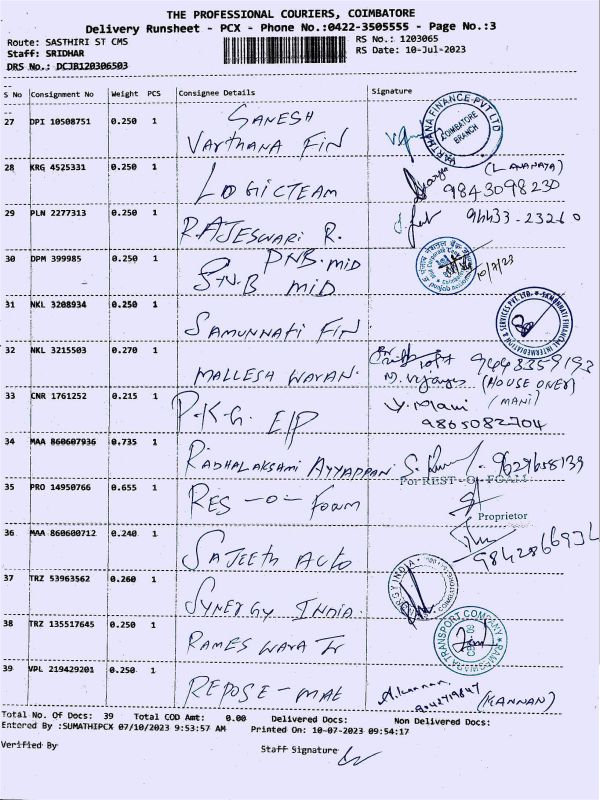 THE PROFESSIONAL COURIERS, COIMBATORE
Delivery Runsheet - PCX - Phone No.:0422-3505555 - Page No.:3
Route: SASTHIRI ST CMS RS No.: 1203065
Staff: SRIDHAR RS Date: 10-Jul-2023
DRS No.: DCJB120306503
S No Consignment No Weight PCS Consignee Details Signature
27 DPI 10508751 0.250 1 SANESH
VARTHANA FIN
VARTHANA FINANCE PVT LTD
COIMBATORE BRANCH
28 KRG 4525331 0.250 1 LOGICTEAM
(LAVANAYA)
9843098230
29 PLN 2277313 0.250 1 RAJESWARI R. 94433-23260
30 DPM 399985 0.250 1 PNB. MID
PNB MID 10/7/23
31 NKL 3208934 0.250 1 SAMUNNATI FIN
SAMUNNATI FINANCIAL INTERMEDIATION & SERVICES PVT. LTD.
32 NKL 3215503 0.270 1 MALLESH WARAN. 9443359193
(HOUSE ONER)
33 CNR 1761252 0.215 1 P.K.G. E/P (MANI)
9865082704
34 MAA 860607936 0.735 1 RADHALAKSHMI AYYAPPAN 9629658139
35 PRO 14950766 0.655 1 RES -O- FOAM
For REST - O - FOAM
Proprietor
36 MAA 860600712 0.240 1 SAJEETH AUTO
37 TRZ 53963562 0.260 1 SYNERGY INDIA.
38 TRZ 135517645 0.250 1 RAMES WARA Tr
RAMESWARA TRANSPORT COMPANY
39 VPL 219429201 0.250 1 REPOSE - MAT
A. Kannan (KANNAN)
Total No. Of Docs: 39 Total COD Amt: 0.00 Delivered Docs: Non Delivered Docs:
Entered By :SUMATHIPCX 07/10/2023 9:53:57 AM Printed On: 10-07-2023 09:54:17
Verified By Staff Signature